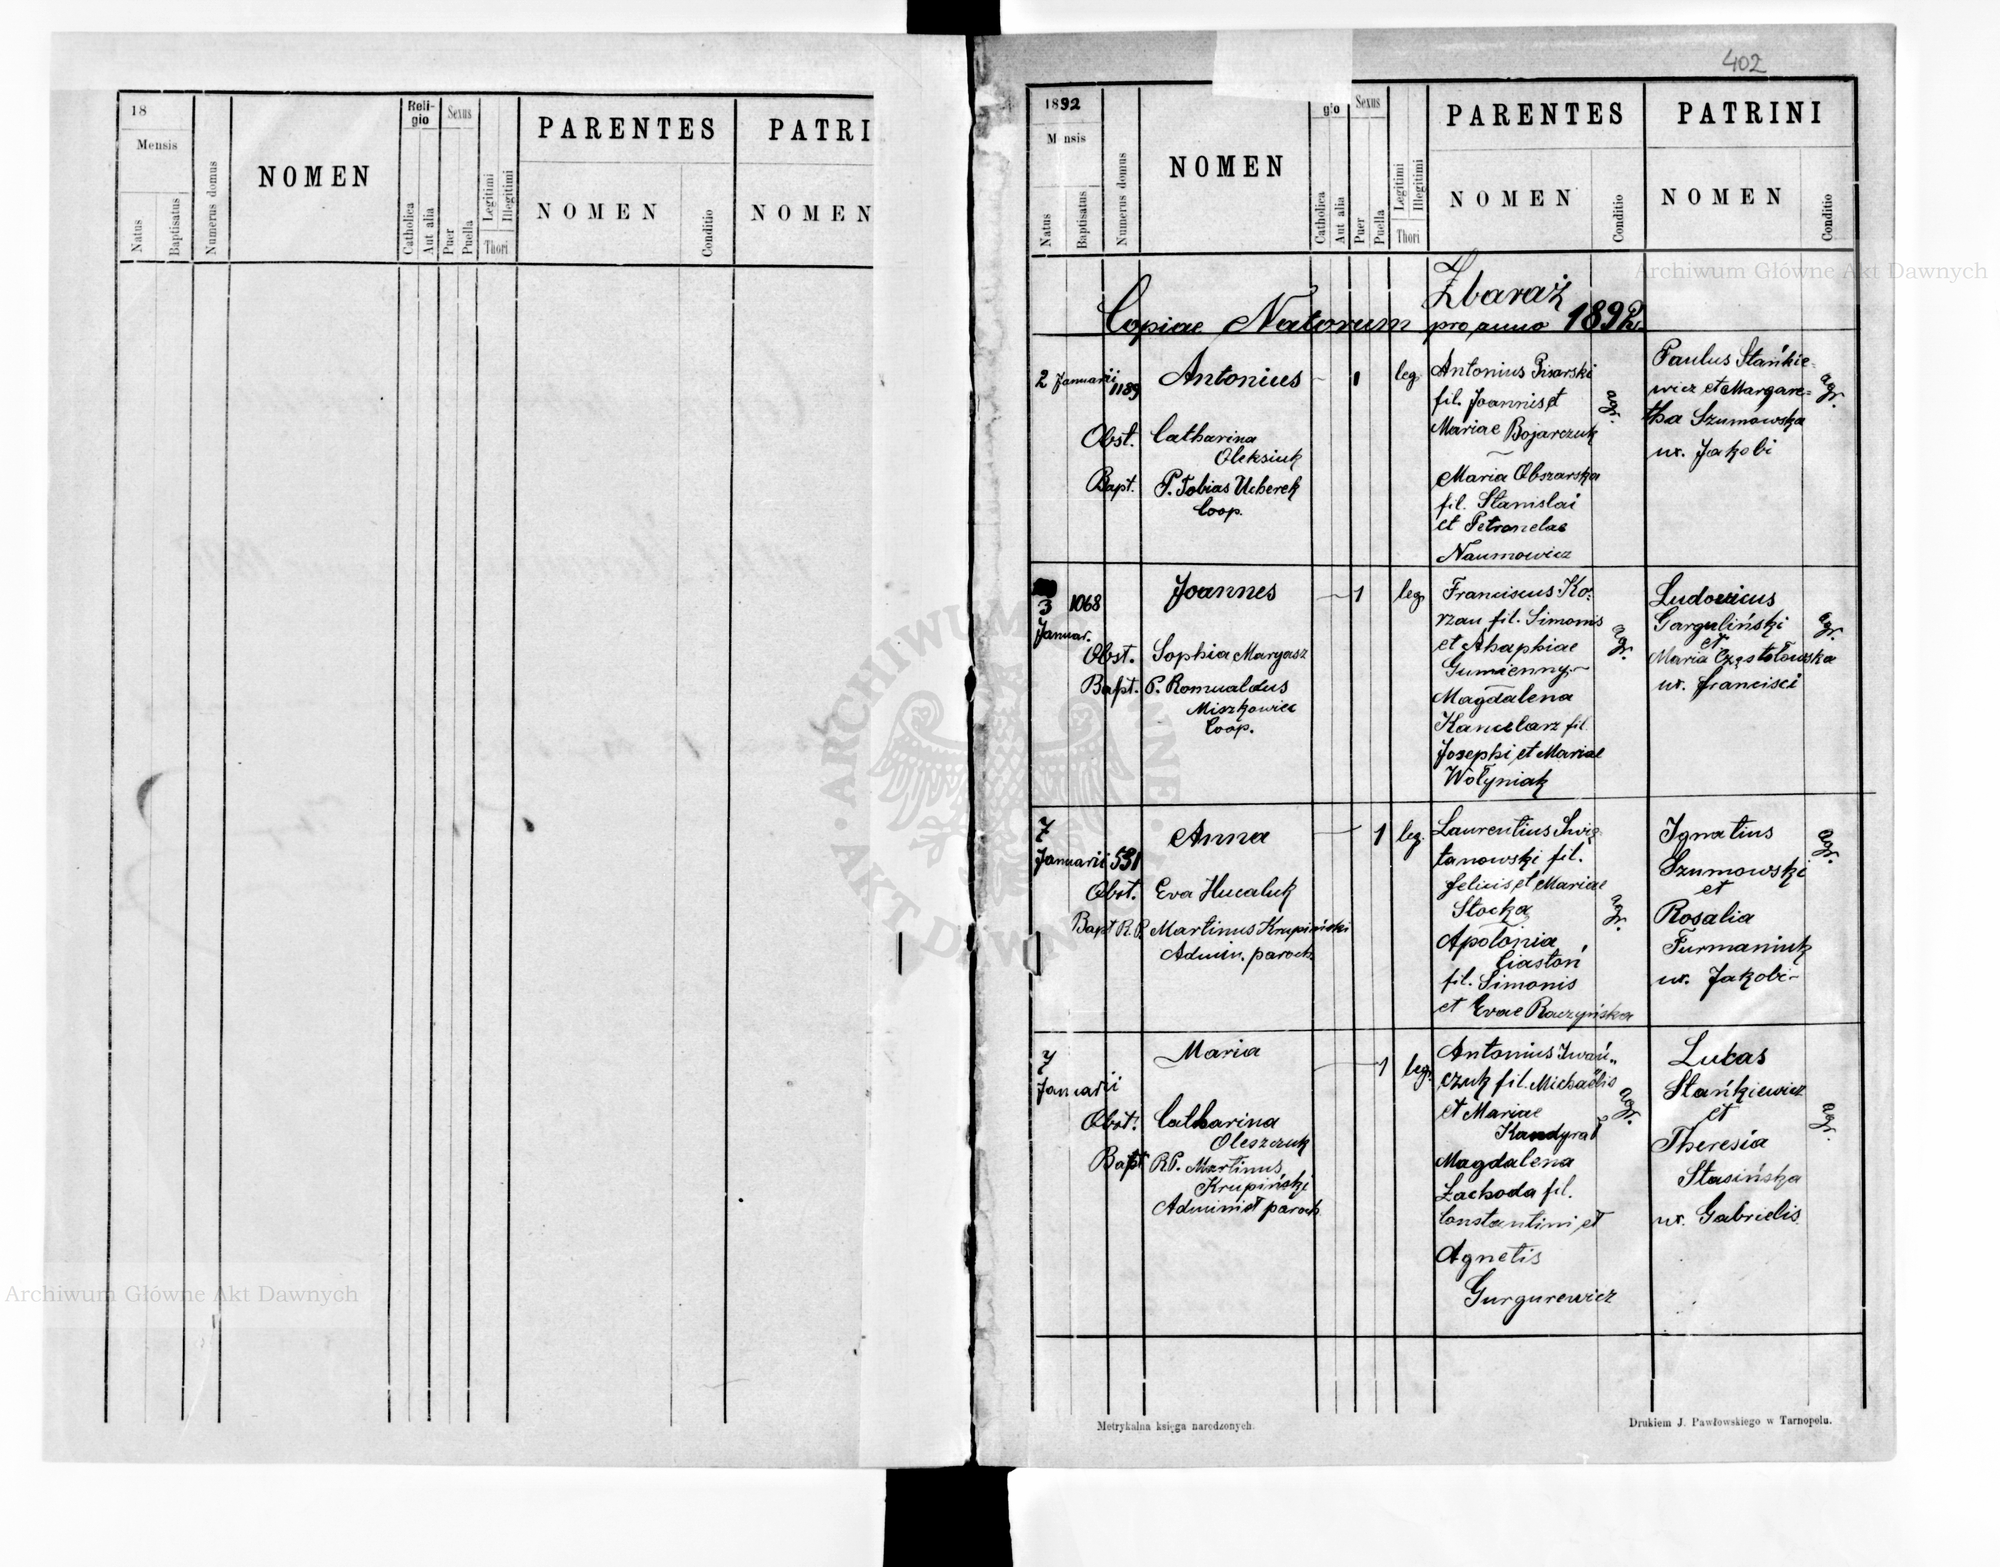 18
Mensis
Natus
Baptisatus
Numerus domus
NOMEN
Reli-
gio
Catholica
Aut alia
Sexus
Puer
Puella
Legitimi
Illegitimi
Thori
PARENTES
NOMEN
Conditio
PATRI
NOMEN
402
1892
M nsis
Natus
Baptisatus
Numerus domus
NOMEN
gio
Catholica
Aut alia
Sexus
Puer
Puella
Legitimi
Illegitimi
Thori
PARENTES
NOMEN
Conditio
PATRINI
NOMEN
Conditio
Zbaraż
Copiae Natorum pro anno 1892
2 Januarii
1189
Antonius
1
leg
Obst. Catharina
Oleksiuk
Bapt. P. Tobias Ucherek
Coop.
Antonius Pisarski
fil. Joannis et
Mariae Bojarczuk
Maria Obszarska
fil. Stanislai
et Petronelae
Naumowicz
agr.
Paulus Stańkie-
wicz et Margare-
tha Szumowska
ux. Jakobi
agr.
3
Januar.
1068
Joannes
1
leg
Obst. Sophia Margasz
Bapt. P. Romualdus
Miszkowiec
Coop.
Franciscus Ko-
rzau fil. Simonis
et Ahaphiae
Gumienny
Magdalena
Kancelarz fil.
Josephi et Mariae
Wołyniak
agr.
Ludovicus
Garguliński
et
Maria Częstołowska
ux. Francisci
agr.
7
Januarii
531
Anna
1
leg.
Obst. Eva Hucaluk
Bapt R. P. Martinus Krupiński
Admin. paroch
Laurentius Świę-
tanowski fil.
Felicis et Mariae
Stocka
Apolonia
Ciastoń
fil. Simonis
et Evae Raczyńska
agr.
Ignatius
Szumowski
et
Rosalia
Furmaniuk
ux. Jakobi
agr.
7
Januarii
Maria
1
leg.
Obst. Catharina
Oleszczuk
Bapt RP. Martinus
Krupiński
Administ paroch
Antonius Iwań„
czuk fil. Michaëlis
et Mariae
Kandyrał
Magdalena
Zachoda fil.
Constantini et
Agnetis
Gurgurewicz
agr.
Lucas
Stańkiewicz
et
Theresia
Stasińska
ux. Gabrielis
agr.
Metrykalna księga narodzonych.
Drukiem J. Pawłowskiego w Tarnopolu.
Archiwum Główne Akt Dawnych
ARCHIWUM GŁÓWNE AKT DAWNYCH
Archiwum Główne Akt Dawnych